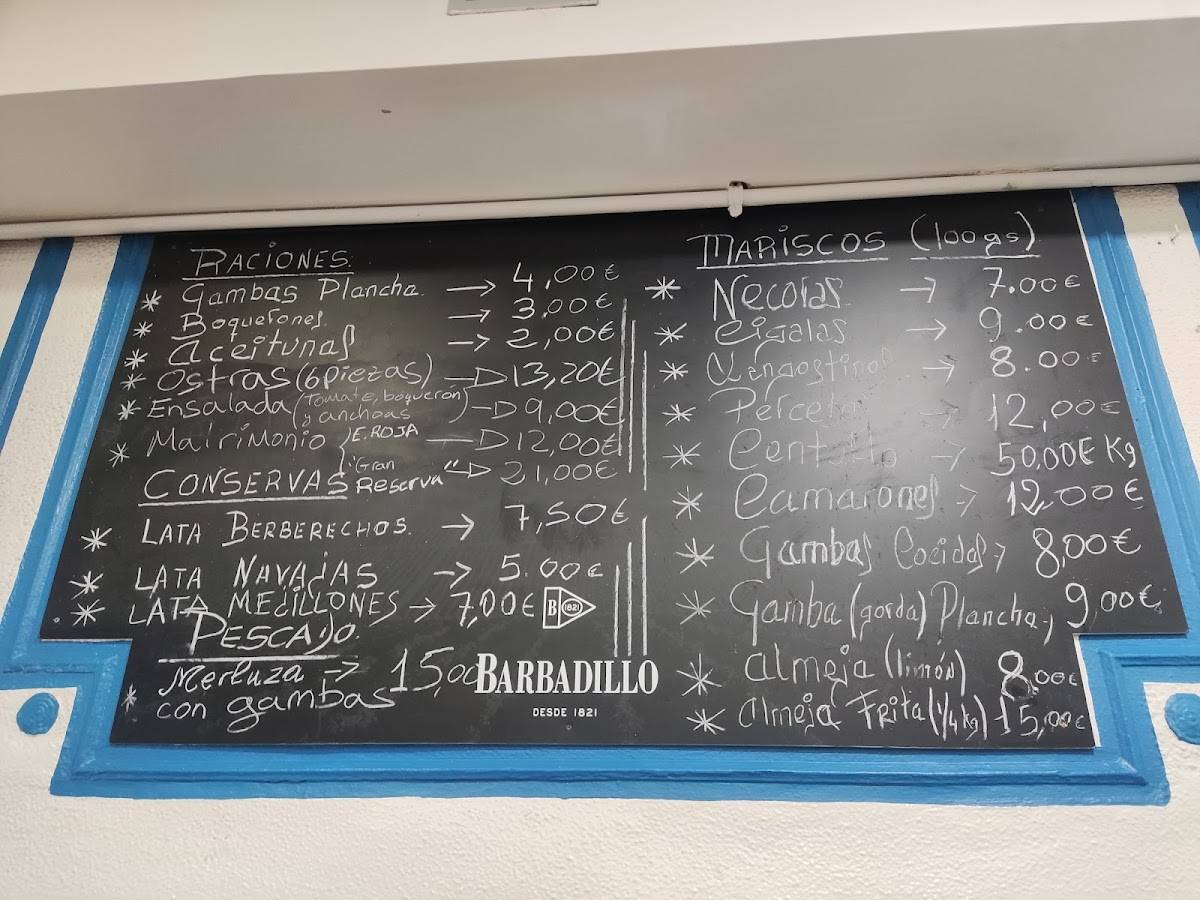 RACIONES
* Gambas Plancha → 4,00€
* Boquerones → 3.00€
* Aceitunas → 2,00€
* Ostras (6 piezas) → 13,20€
* Ensalada (Tomate, boquerón → 9,00€
y anchoas)
* Matrimonio E. ROJA → 12,00€
"Gran
Reserva" → 21,00€
CONSERVAS
* LATA BERBERECHOS. → 7,50€
* LATA NAVAJAS → 5.00€
* LATA MEJILLONES → 7,00€
PESCADO.
* Merluza → 15,00
con gambas
B 1821
BARBADILLO
DESDE 1821
MARISCOS (100gs)
* Necoras → 7.00€
* Cigalas → 9.00€
* Langostinos → 8.00€
* Percebes → 12,00€
* Centollo → 50,00€ Kg
* Camarones → 12,00€
* Gambas Cocidas → 8,00€
* Gamba (gorda) Plancha → 9,00€
* Almeja (limón) 8,00€
* Almeja Frita (1/4 kg) 15,00€